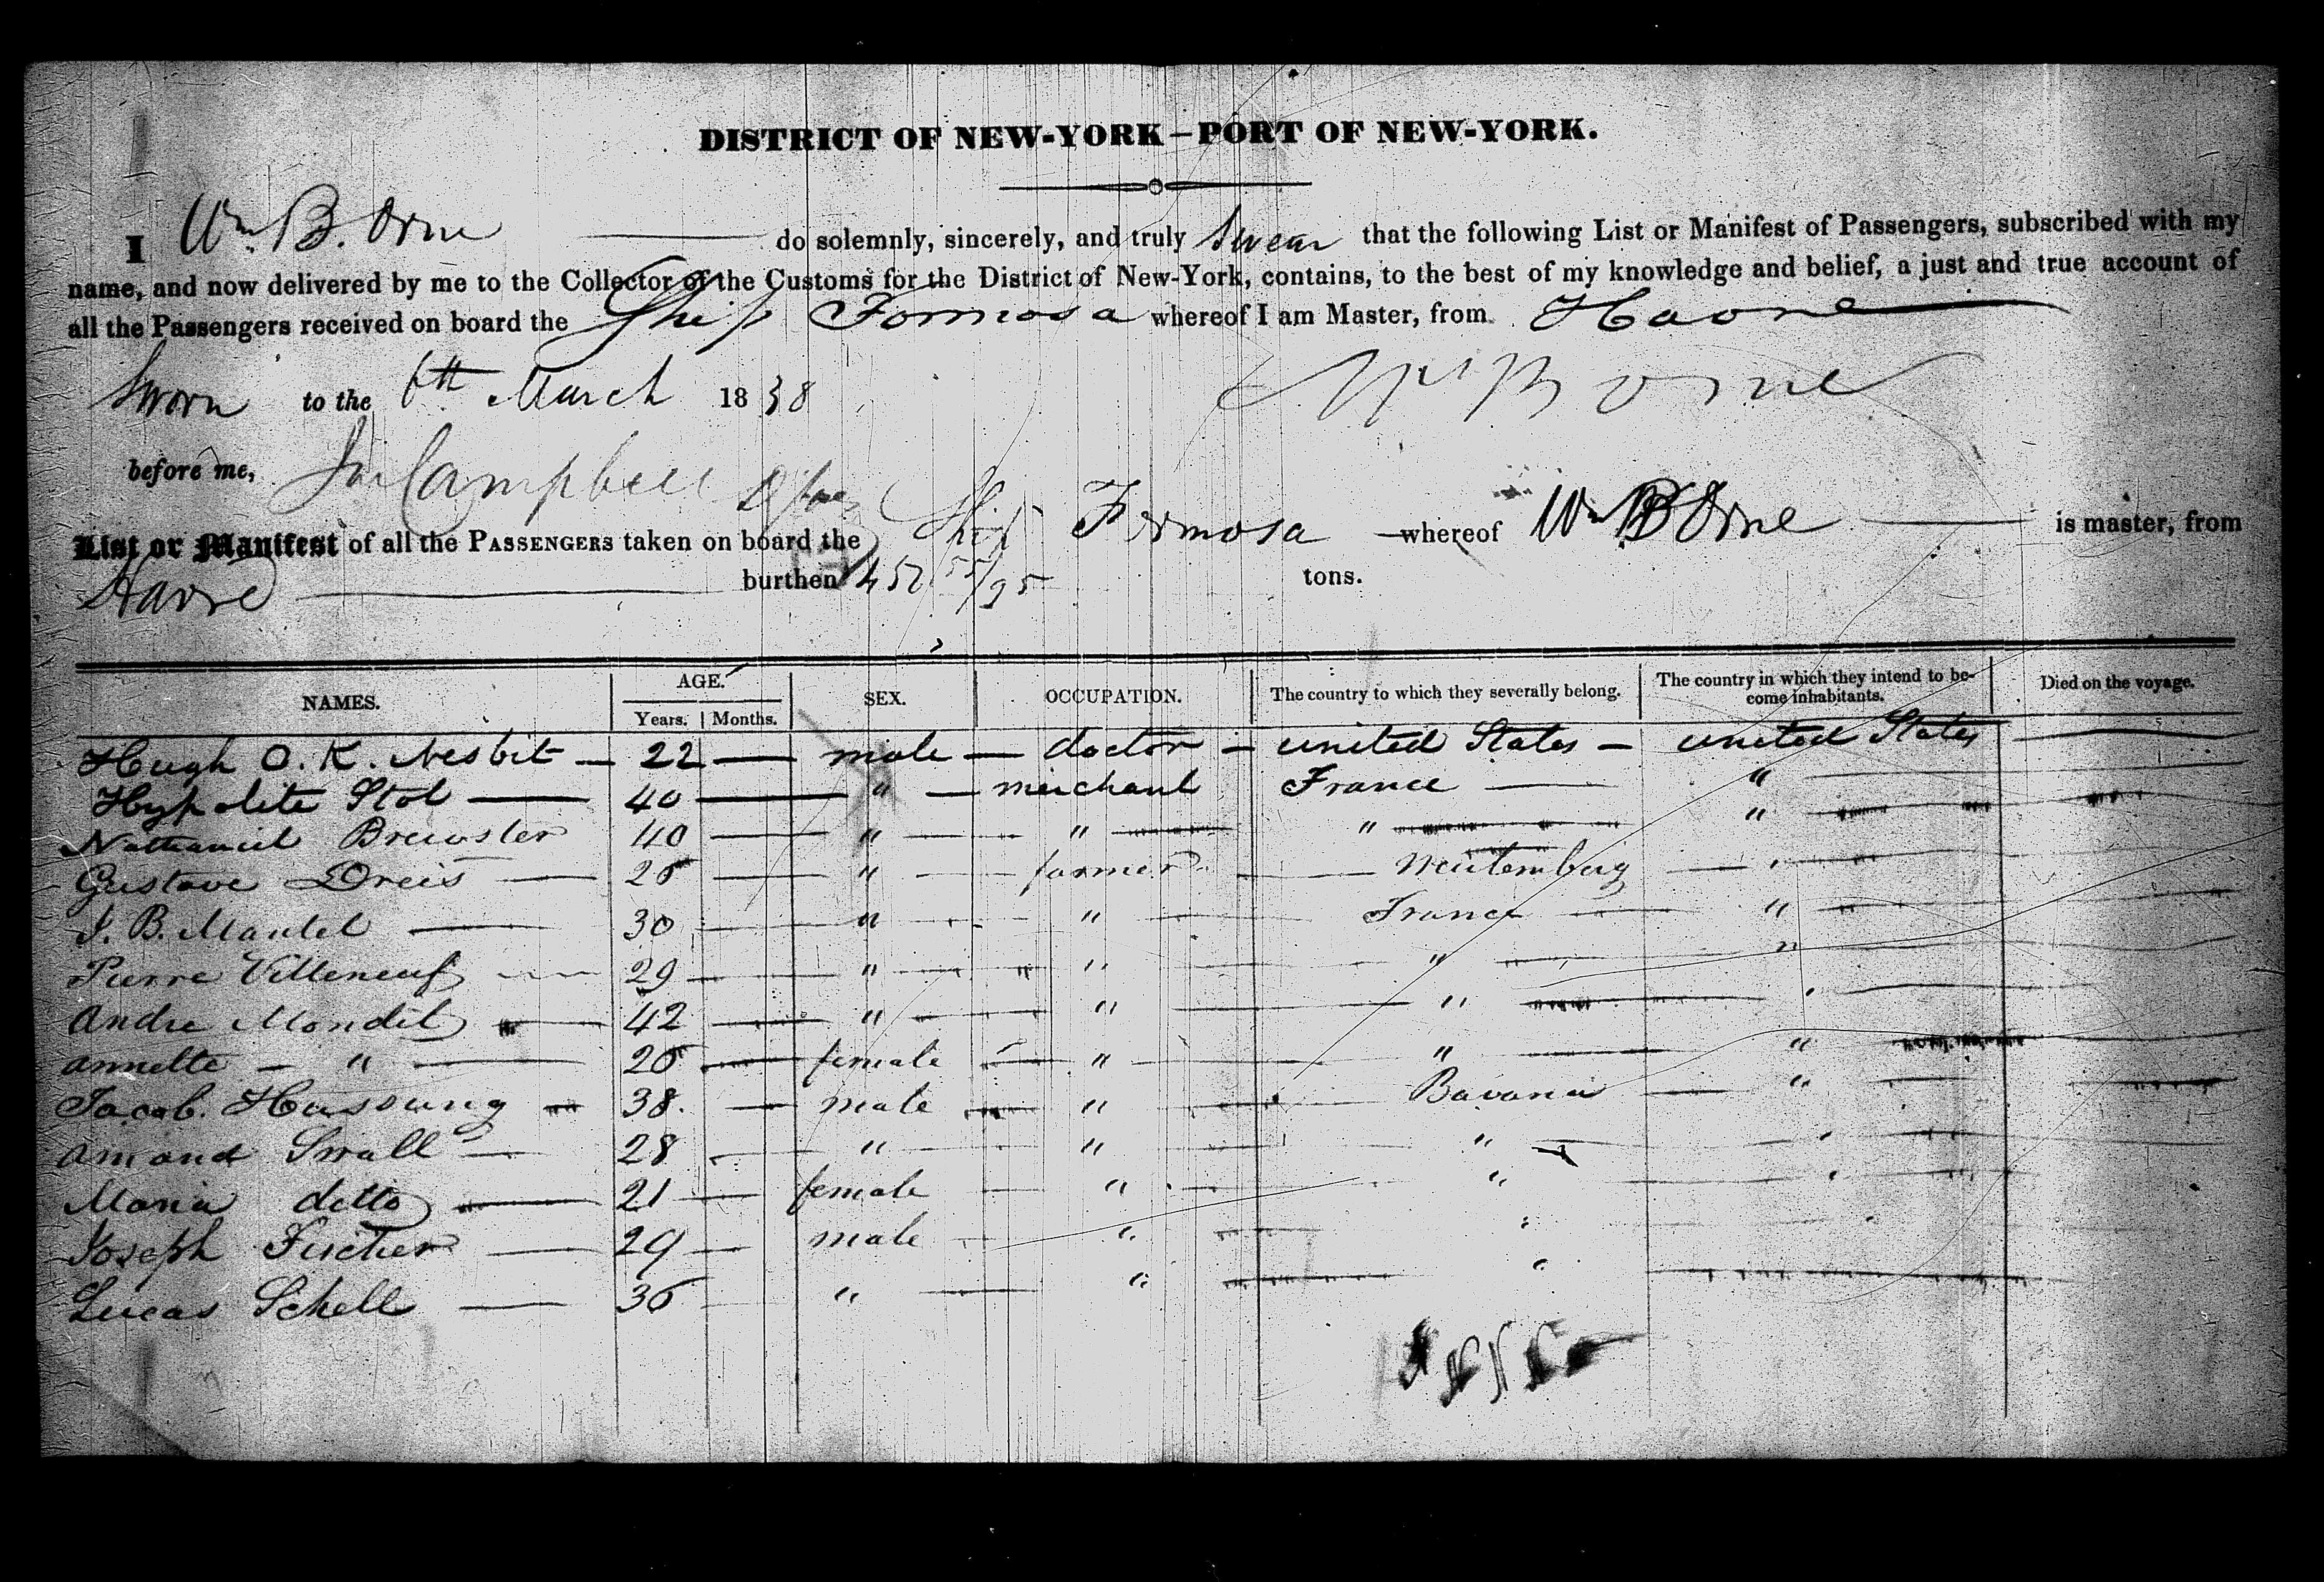 DISTRICT OF NEW-YORK—PORT OF NEW-YORK.
I Wm. B. Orne do solemnly, sincerely, and truly swear that the following List or Manifest of Passengers, subscribed with my
name, and now delivered by me to the Collector of the Customs for the District of New-York, contains, to the best of my knowledge and belief, a just and true account of
all the Passengers received on board the Ship Formosa whereof I am Master, from Havre
Sworn to the 6th March 1838 Wm B Orne
before me, Campbell
List or Manifest of all the PASSENGERS taken on board the Ship Formosa whereof Wm B Orne is master, from
Havre burthen 45 /95 tons.
NAMES. AGE. Years. Months. SEX. OCCUPATION. The country to which they severally belong. The country in which they intend to become inhabitants. Died on the voyage.
Hugh O. K. Nesbit — 22 — male — doctor — united States — united States
Hypolite Stol — 40 — " — merchant France — "
Nathaniel Brewster 40 — " — " — " — "
Gustave Dreis — 25 — " — farmer — Wurtemberg — "
J. B. Mantel — 30 — " — " — France — "
Pierre Villeneuf — 29 — " — " — " — "
Andre Mondil — 42 — " — " — " — "
annette — " — 25 — female — " — " — "
Jacob. Hassung — 38. — male — " — Bavaria — "
amand Small — 28 — " — " — " — "
Maria ditto — 21 — female — " — " — "
Joseph Fischer — 29 — male — " — " — "
Lucas Schell — 35 — " — " — "